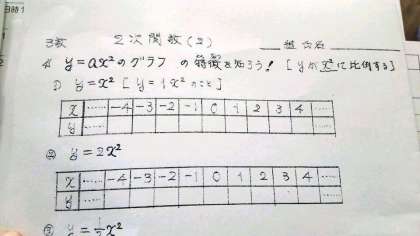 3数 2次関数(2) 組 氏名
y=ax²のグラフ の特徴を知ろう! [yがx²に比例する]
① y=x² [y=1x²のこと]
x …… -4 -3 -2 -1 0 1 2 3 4 ……
y
② y=2x²
x …… -4 -3 -2 -1 0 1 2 3 4 ……
y
③ y=½x²